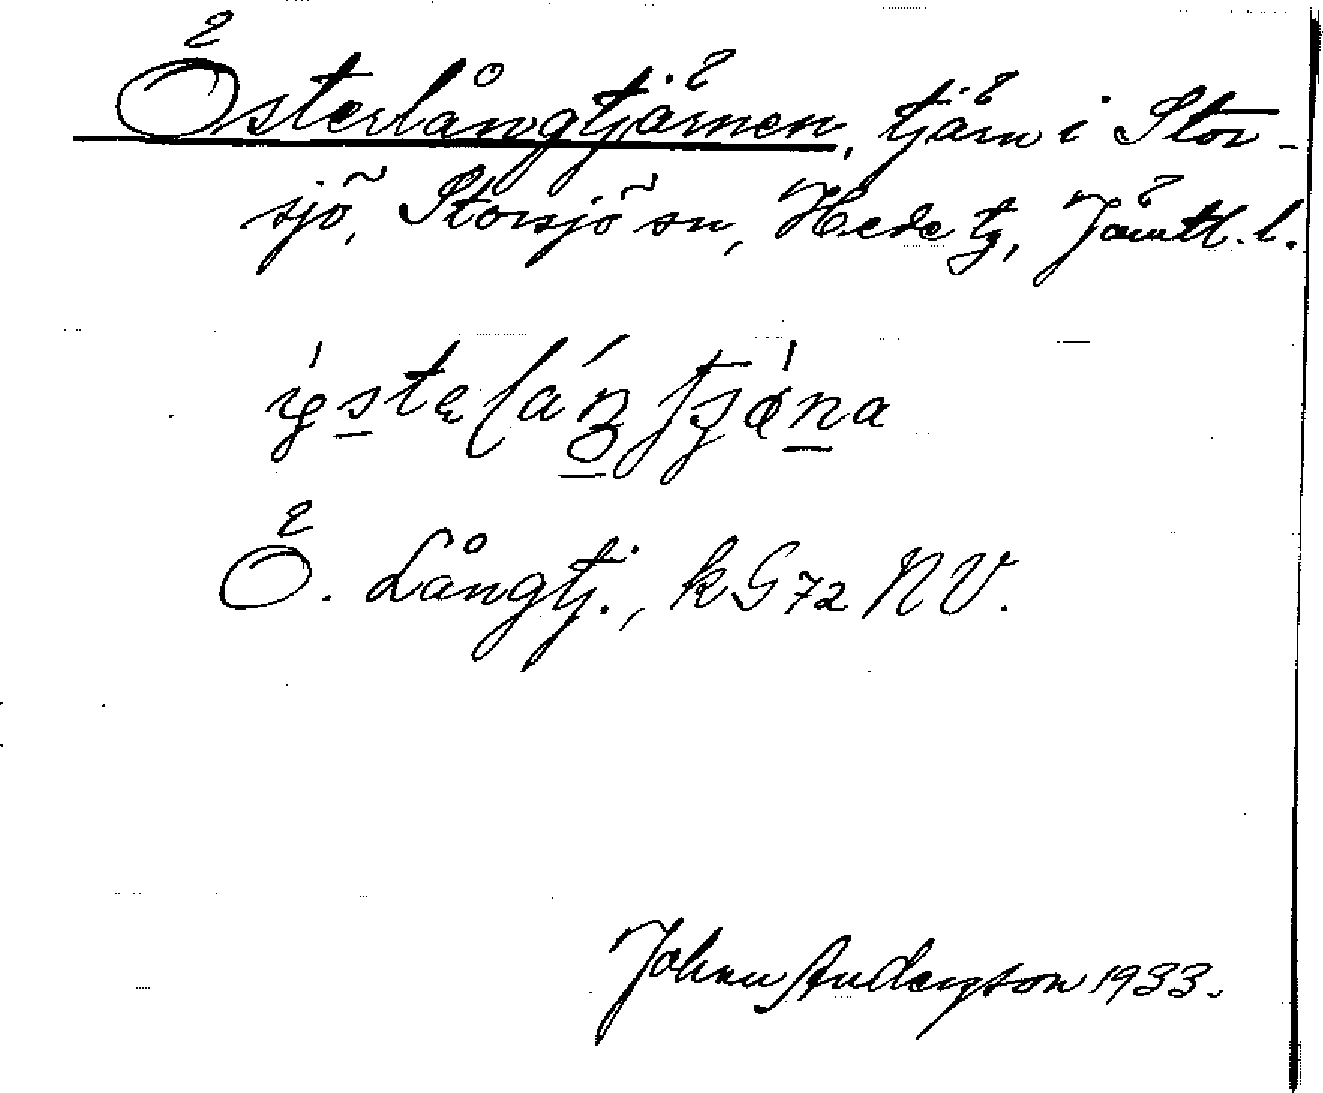 Österlångtjärnen, tjärn i Stor-
sjö, Storsjö sn, Hede tg, Jämtl. l.
Ö. Långtj., kG72 NV.
Johan Andersson 1933.